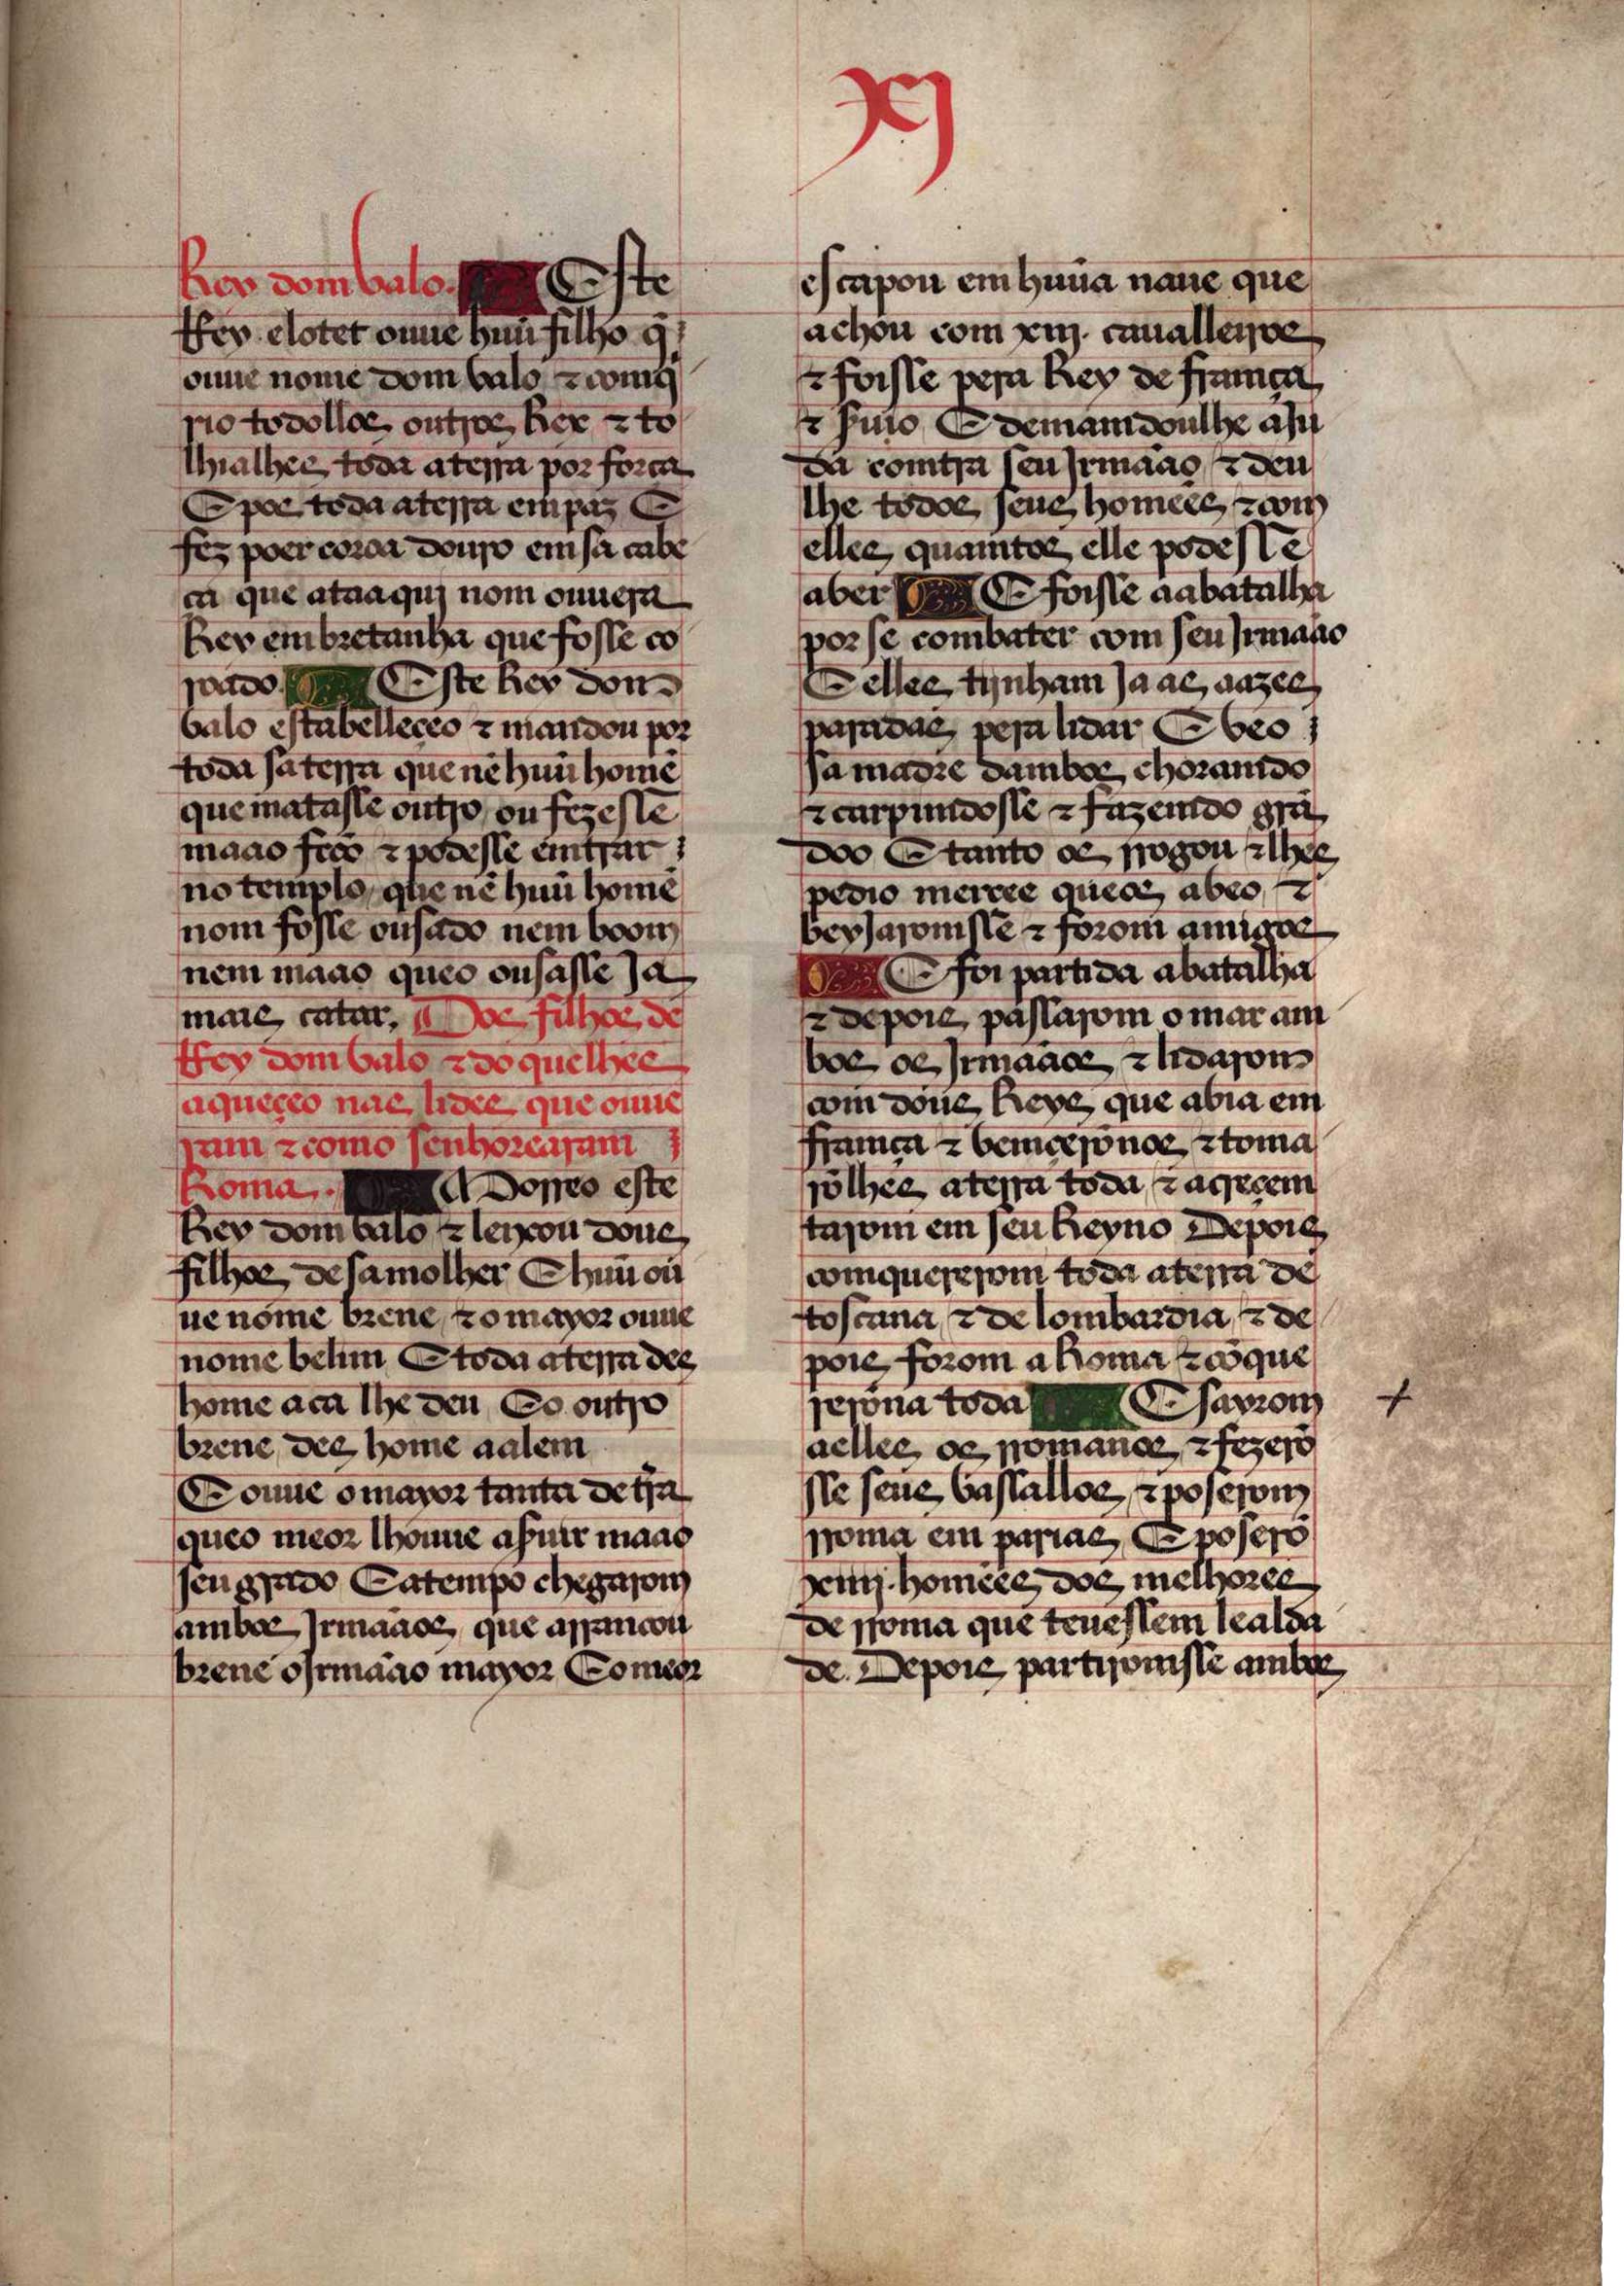 xj
Rey dom valo. Este
Rey elotet ouue huũ filho q̃
ouue nome dom valo ⁊ comq̃
rio todollos outros Rex ⁊ to
lhialhes toda a terra por forca
E pos toda a terra em paz E
fez poer coroa douro em sa cabe
ca que ataaquj nom ouuera
Rey em bretanha que fosse co
roado. Este Rey dom
valo estabelleçeo ⁊ mandou por
toda sa terra que nẽ huũ homẽ
que matasse outro, ou fezesse
maao feo ⁊ podesse emtrar
no templo, que nẽ huũ homẽ
nom fosse ousado nem boom
nem maao queo ousasse Ja
mais catar. Dos filhos de
Rey dom valo ⁊ do quelhes
aqueçeo nas lides que ouue
ram ⁊ como senhorearam
Roma. Morreo este
Rey dom valo ⁊ leyxou dous
filhos de sa molher E huũ ou
ue nome brene, ⁊ o mayor ouue
nome belim E toda a terra des
home aca lhe deu Eo outro
brene des home aalem
E ouue o mayor tanta de tr̃a
queo meor lhouue a s̃uir maao
seu grado E a tempo chegarom
ambos Jrmaãos que arrancou
brene o Jrmaão mayor Eo meor
escapou em huũa naue que
achou com xiij. caualleiros
⁊ foisse pera Rey de framça
⁊ s̃uio E demamdoulhe aJu
da comtra seu Jrmaão ⁊ deu
lhe todos seus homeẽs ⁊ com
elles quamtos elle podesse
aber E foisse aabatalha
por se combater com seu Jrmaao
E elles tijnham Ja as aazes
paradas pera lidar E veo
sa madre dambos choramdo
⁊ carpimdosse ⁊ fazemdo grã
doo E tanto os rrogou ⁊ lhes
pedio merçee queos abeo, ⁊
beyJaromsse ⁊ forom amigos
E foi partida a batalha
⁊ depois passarom o mar am
bos os Jrmaãos ⁊ lidarom
com dous Reys que abia em
framça ⁊ vemçerõnos ⁊ toma
rõlhes a terra toda ⁊ acreçem
tarom em seu Reyno Depois
comquererom toda a terra de
toscana ⁊ de lombardia ⁊ de
pois forom a Roma ⁊ cõque
rerõna toda E sayrom
aelles os rromanos ⁊ fezerõ
sse seus vassallos ⁊ poserom
rroma em parias E poserõ
xxiiij. homeẽs dos melhores
de rroma que teuessem lealda
de. Depois partiromsse ambos